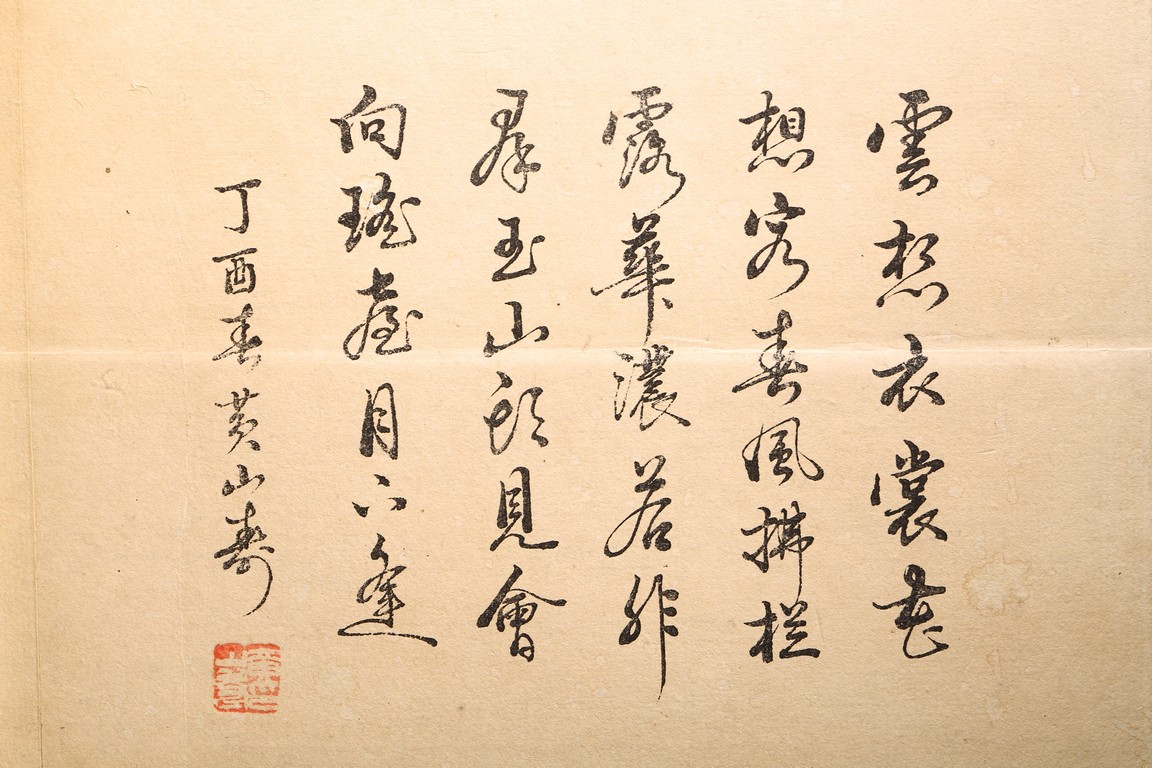 雲想衣裳花
想容春風拂栏
露華濃若非
羣玉山頭見會
向瑤臺月下逢
丁酉春黄山壽